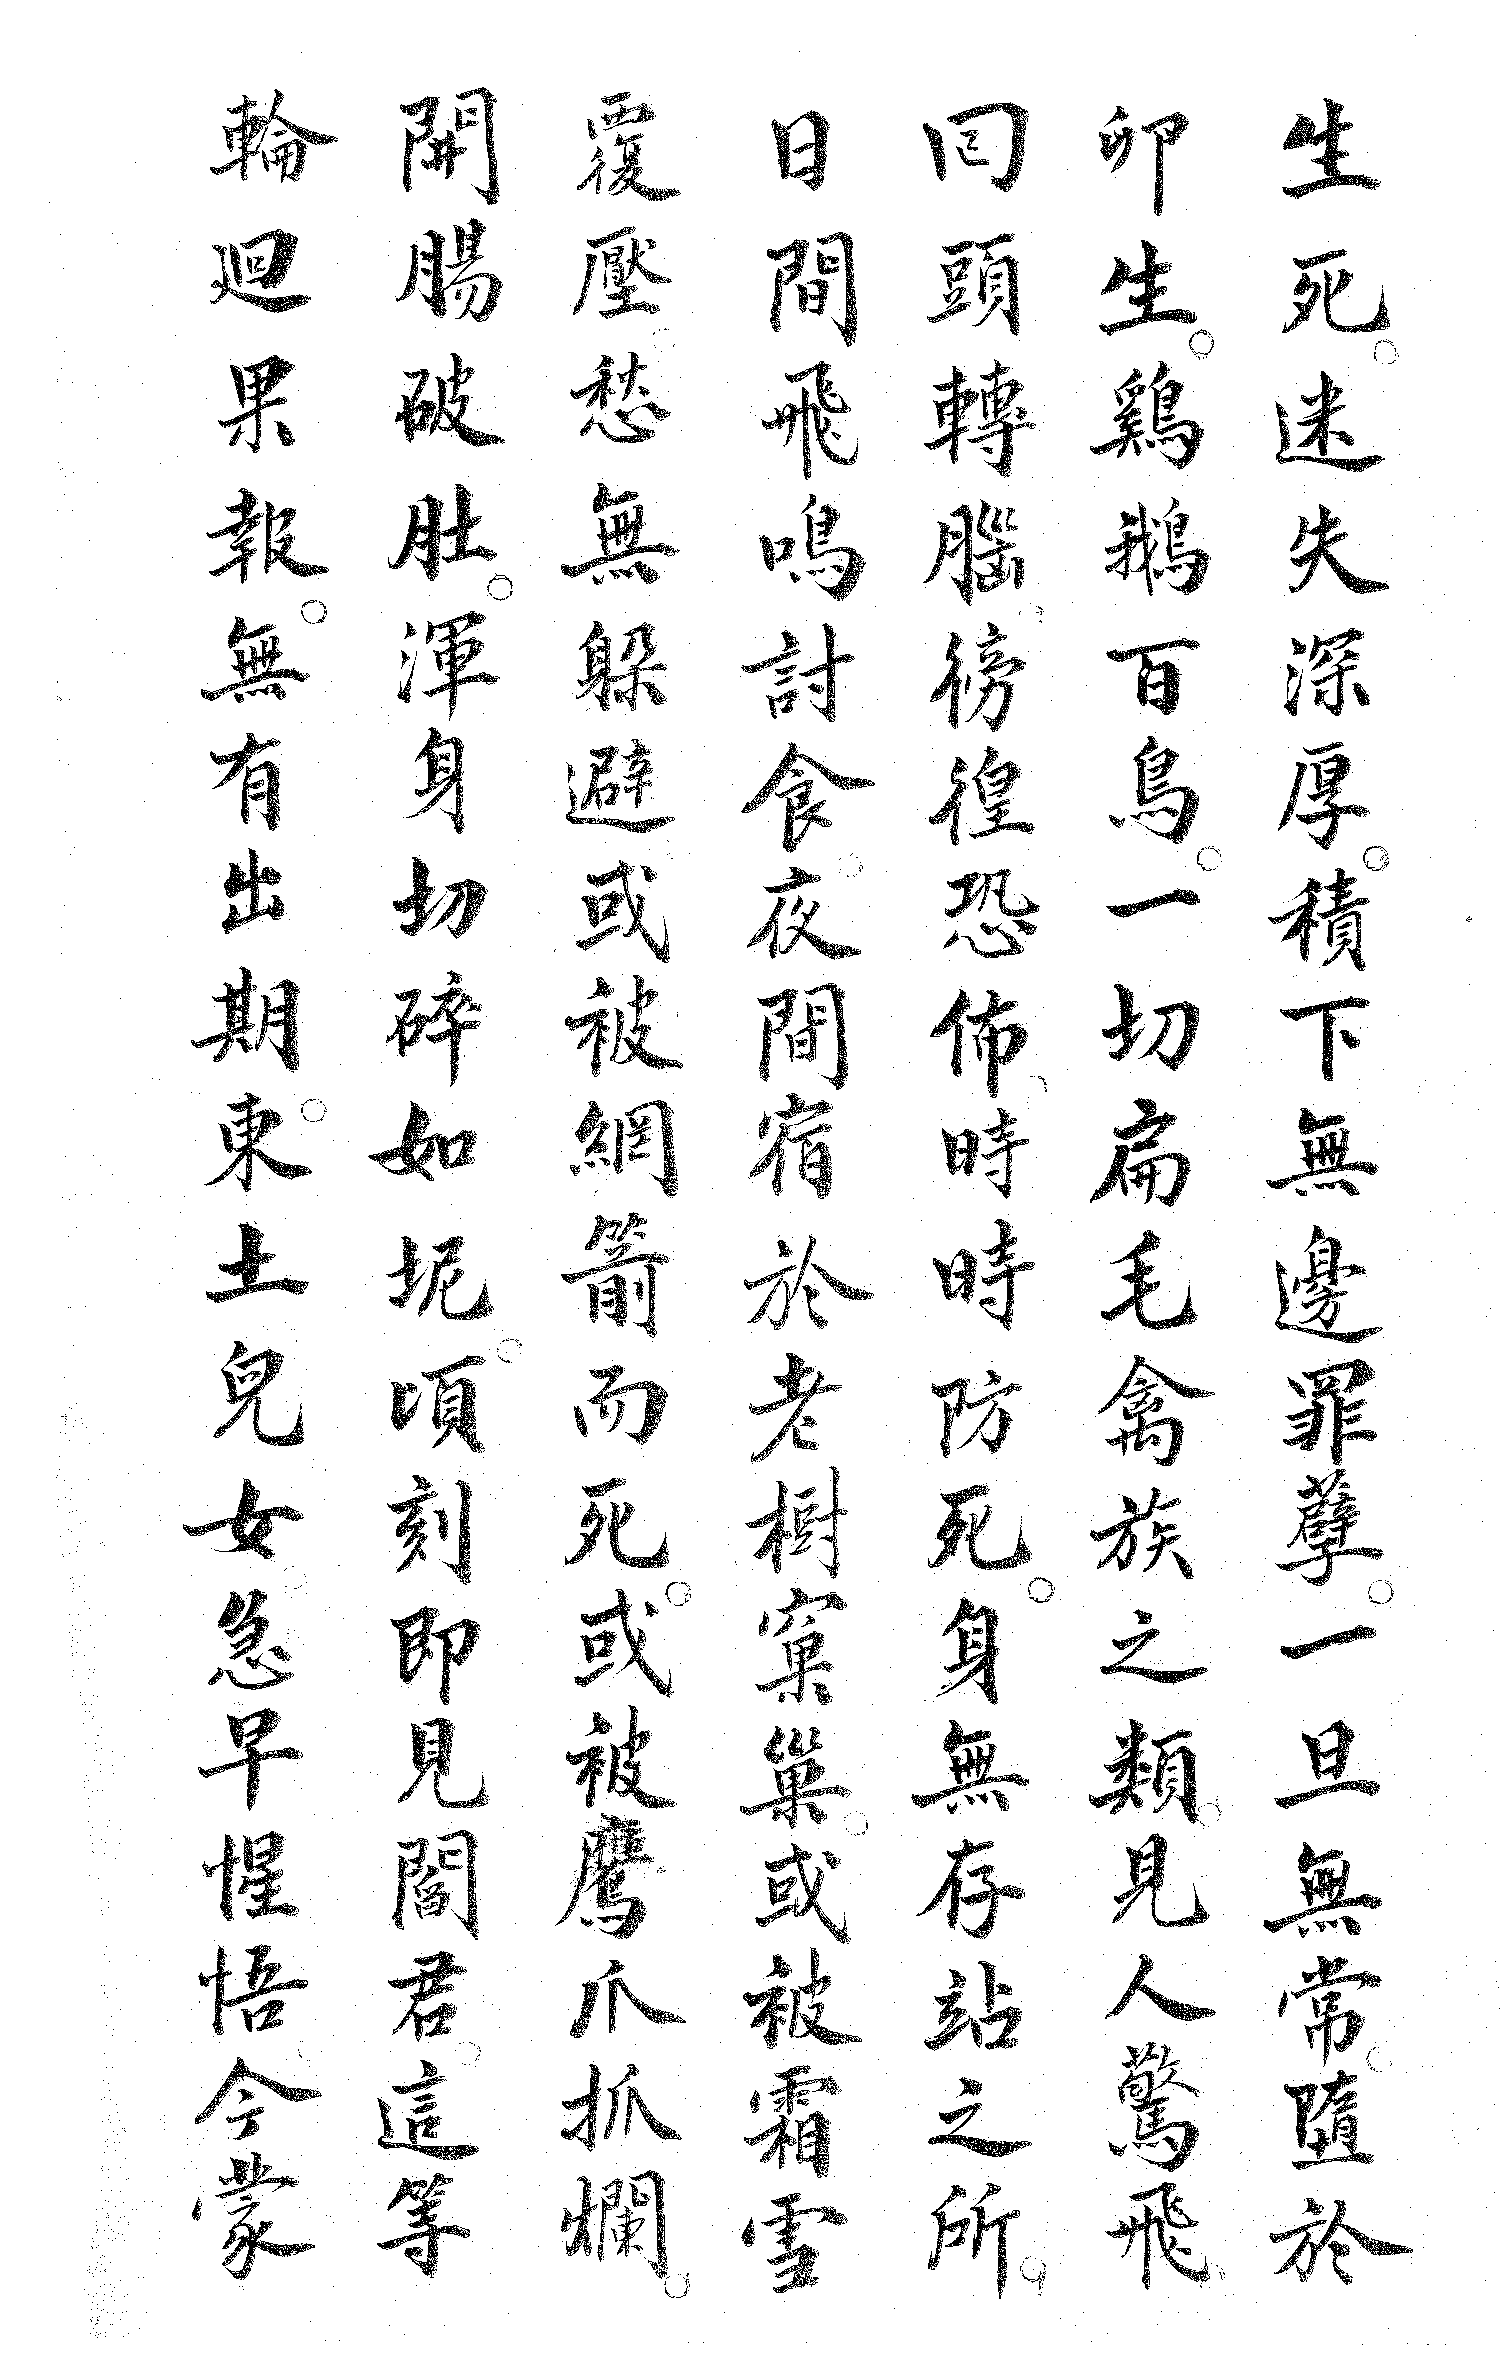 生死。迷失深厚。積下無邊罪孽。一旦無常。墮於
卵生。鷄鵝百鳥。一切扁毛禽族之類。見人驚飛。
囘頭轉腦。徬徨恐佈。時時防死。身無存站之所。
日間飛鳴討食。夜間宿於老樹窠巢。或被霜雪
覆壓。愁無躲避或被網箭而死。或被鷹爪抓爛。
開腸破肚。渾身切碎如坭。頃刻即見閻君。這等
輪廻果報。無有出期。東土兒女急早惺悟。今蒙